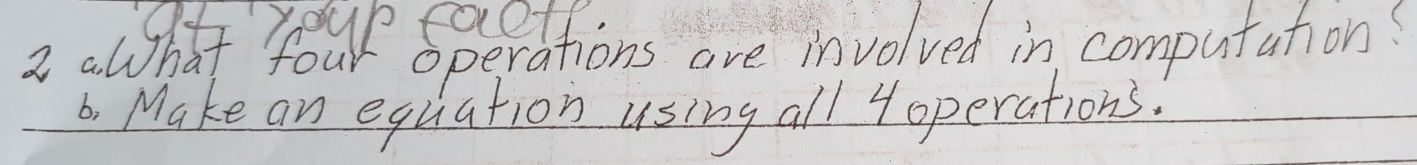 your
2 a. What four operations are involved in computation?
b. Make an equation using all 4 operations.